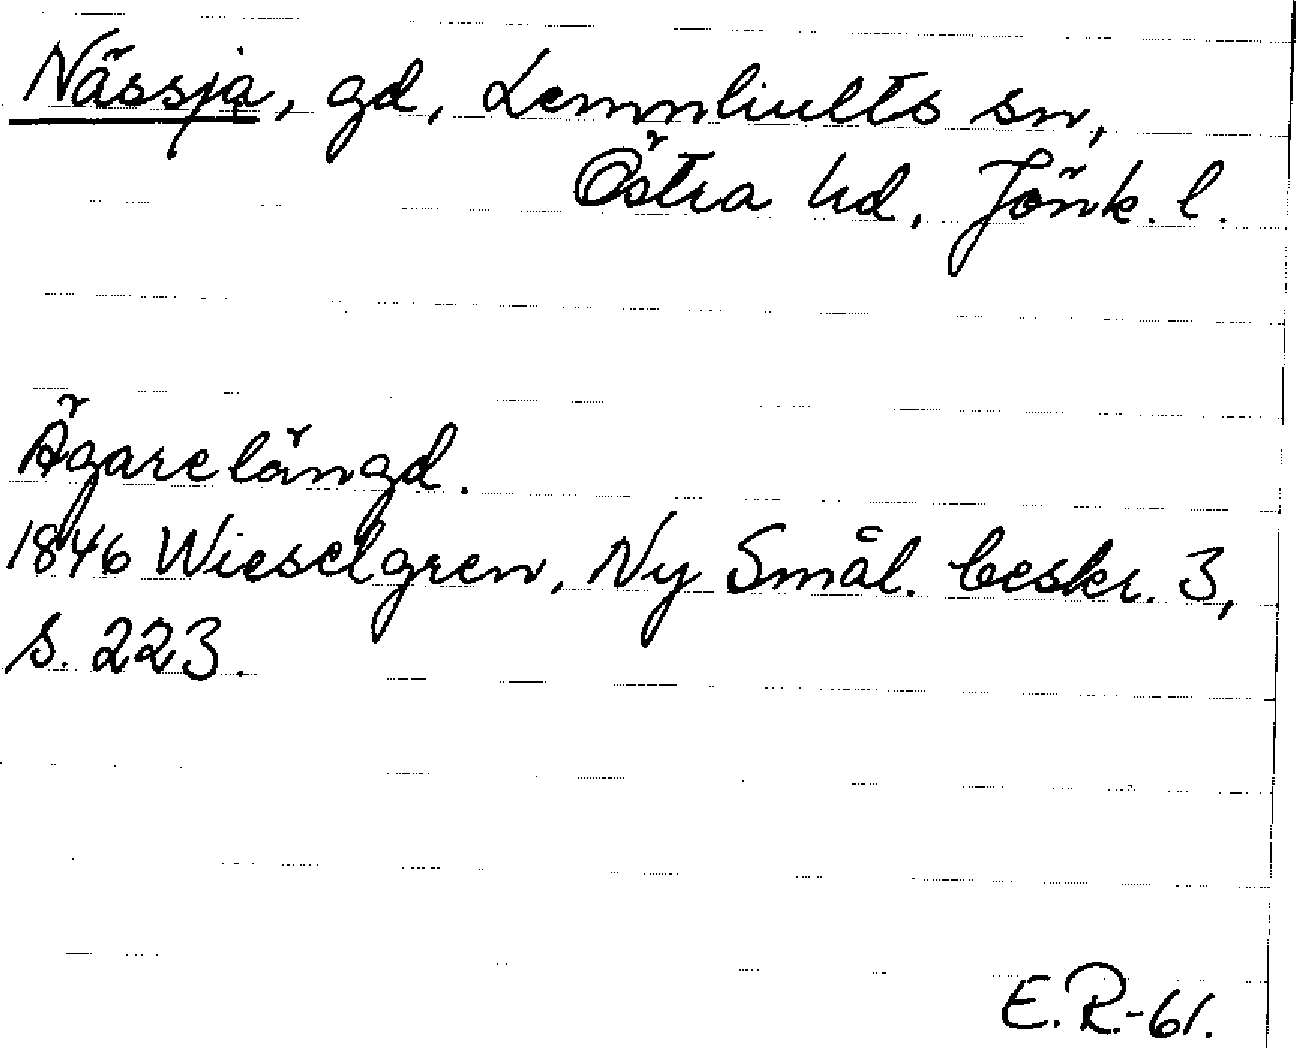 Nässja, gd, Lemnhults sn,
Östra hd, Jönk. l.
Ägarelängd.
1846 Wieselgren, Ny Smål. beskr. 3,
s. 223.
E.R.-61.